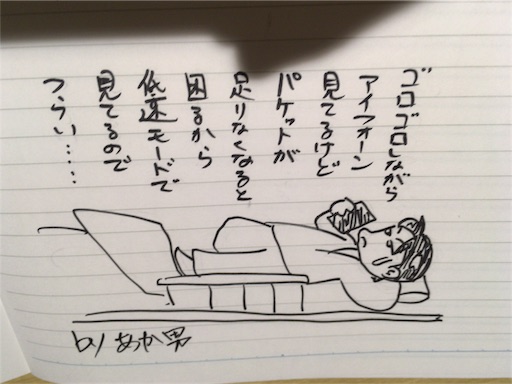 ゴロゴロしながら
アイフォーン
見てるけど
パケットが
足りなくなると
困るから
低速モードで
見てるので
つらい・・・・
by あか男